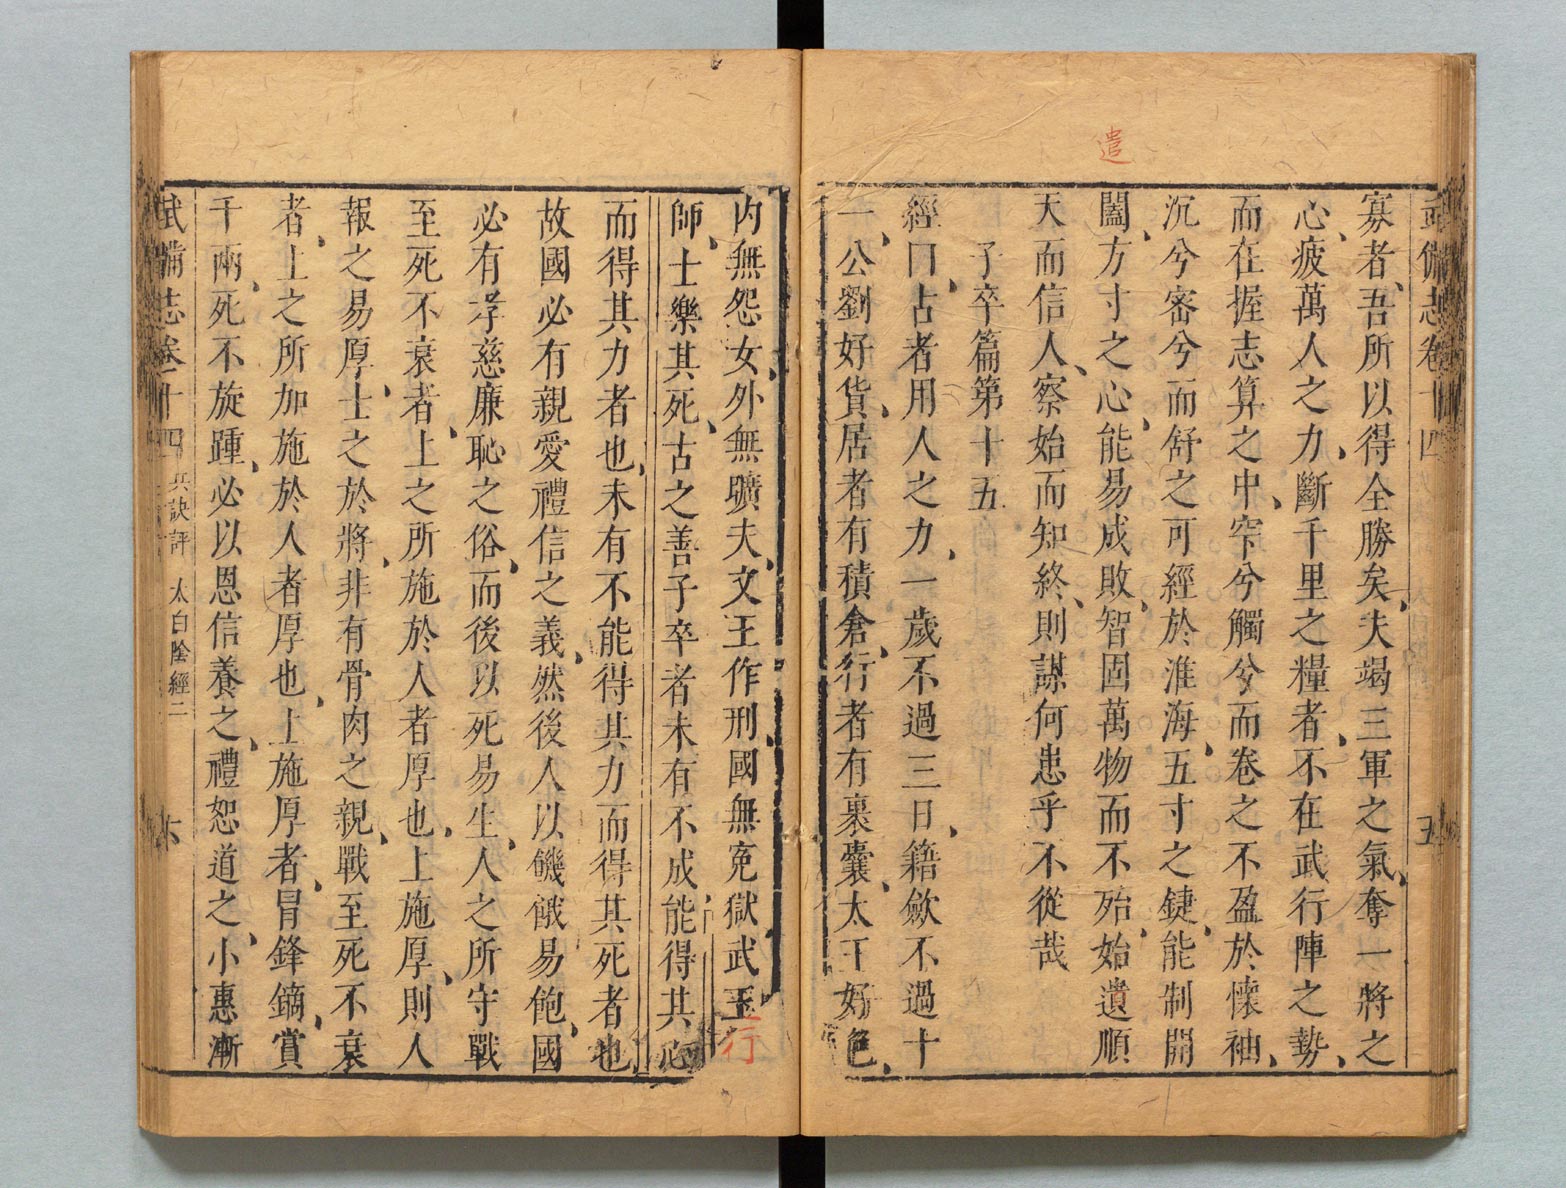 遣
武備志卷十四
五
寡者、吾所以得全勝矣、夫竭三軍之氣、奪一將之
心、疲萬人之力、斷千里之糧者、不在武行陣之勢、
而在握志算之中、窄兮觸兮而卷之不盈於懷袖、
沉兮密兮而舒之可經於淮海、五寸之鍵、能制開
闔、方寸之心、能易成敗、智固萬物而不殆、始遺順
天而信人、察始而知終、則謀何患乎不從哉
子卒篇第十五
經曰、古者用人之力、一歲不過三日、籍歛不過十
一、公劉好貨、居者有積倉、行者有裹囊、太王好色、
內無怨女、外無曠夫、文王作刑、國無冤獄、武王行
師、士樂其死、古之善子卒者、未有不成能得其心
而得其力者也、未有不能得其力而得其死者也
故國必有親愛禮信之義、然後人以饑餓易飽、國
必有孝慈廉恥之俗、而後以死易生、人之所守戰
至死不衰者、上之所施於人者厚也、上施厚、則人
報之易厚、士之於將、非有骨肉之親、戰至死不衰
者、上之所加施於人者厚也、上施厚者、冒鋒鏑、賞
千兩、死不旋踵、必以恩信養之、禮恕道之、小惠漸
武備志卷十四 兵訣評 太白陰經二 六